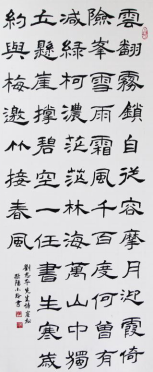 雲翻霧鎖自從容摩月霞倚
險峯雪雨霜風千百度何曾
減綠柯濃茫茫林海萬山中獨
立懸崖撐碧空一任書生寒歲
約與梅邀竹接春風
先生詩崖松
歐陽小書